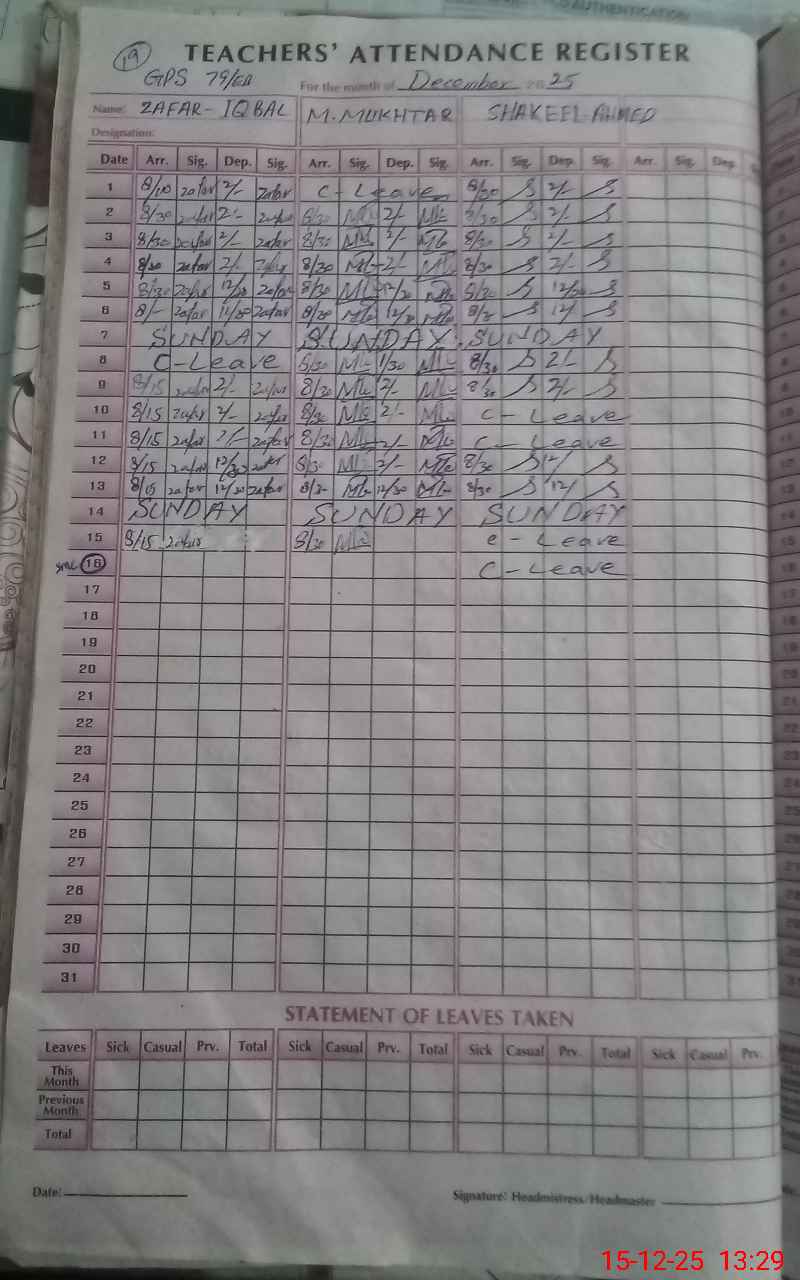 AUTHENTICATION
19 TEACHERS' ATTENDANCE REGISTER
GPS 79/EB For the month of December 2025
Name: ZAFAR-IQBAL M.MUKHTAR SHAKEEL AHMED
Designation:
Date Arr. Sig. Dep. Sig. Arr. Sig. Dep. Sig. Arr. Sig. Dep. Sig. Arr. Sig. Dep.
1 zafar 2/- zafar C-Leave 8/30 2/-
2 8/30 zafar 2/- zafar 8/30 2/- 8/30 2/-
3 8/30 zafar 2/- zafar 8/30 2/- 8/30 2/-
4 8/30 zafar 2/- zafar 8/30 2/- 8/30 2/-
5 8/30 zafar 12/30 zafar 8/30 12/30 8/30
6 8/- zafar zafar 8/30 12/30
7 SUNDAY SUNDAY SUNDAY
8 C-Leave 8/30 1/30 8/30 2/-
9 8/15 zafar 2/- zafar 8/30 2/- 8/30 2/-
10 8/15 zafar 2/- zafar 8/30 2/- C-Leave
11 8/15 zafar 2/- zafar 8/30 2/- C-Leave
12 8/15 zafar 12/30 zafar 8/30 2/- 8/30 12/
13 8/15 zafar 12/30 zafar 8/30 12/30 8/30 12/
14 SUNDAY SUNDAY SUNDAY
15 8/15 zafar 8/30 C-Leave
16 C-Leave
17
18
19
20
21
22
23
24
25
26
27
28
29
30
31
STATEMENT OF LEAVES TAKEN
Leaves Sick Casual Prv. Total Sick Casual Prv. Total Sick Casual Prv. Total Sick Casual Prv.
This Month
Previous Month
Total
Date: Signature: Headmistress/Headmaster
15-12-25 13:29